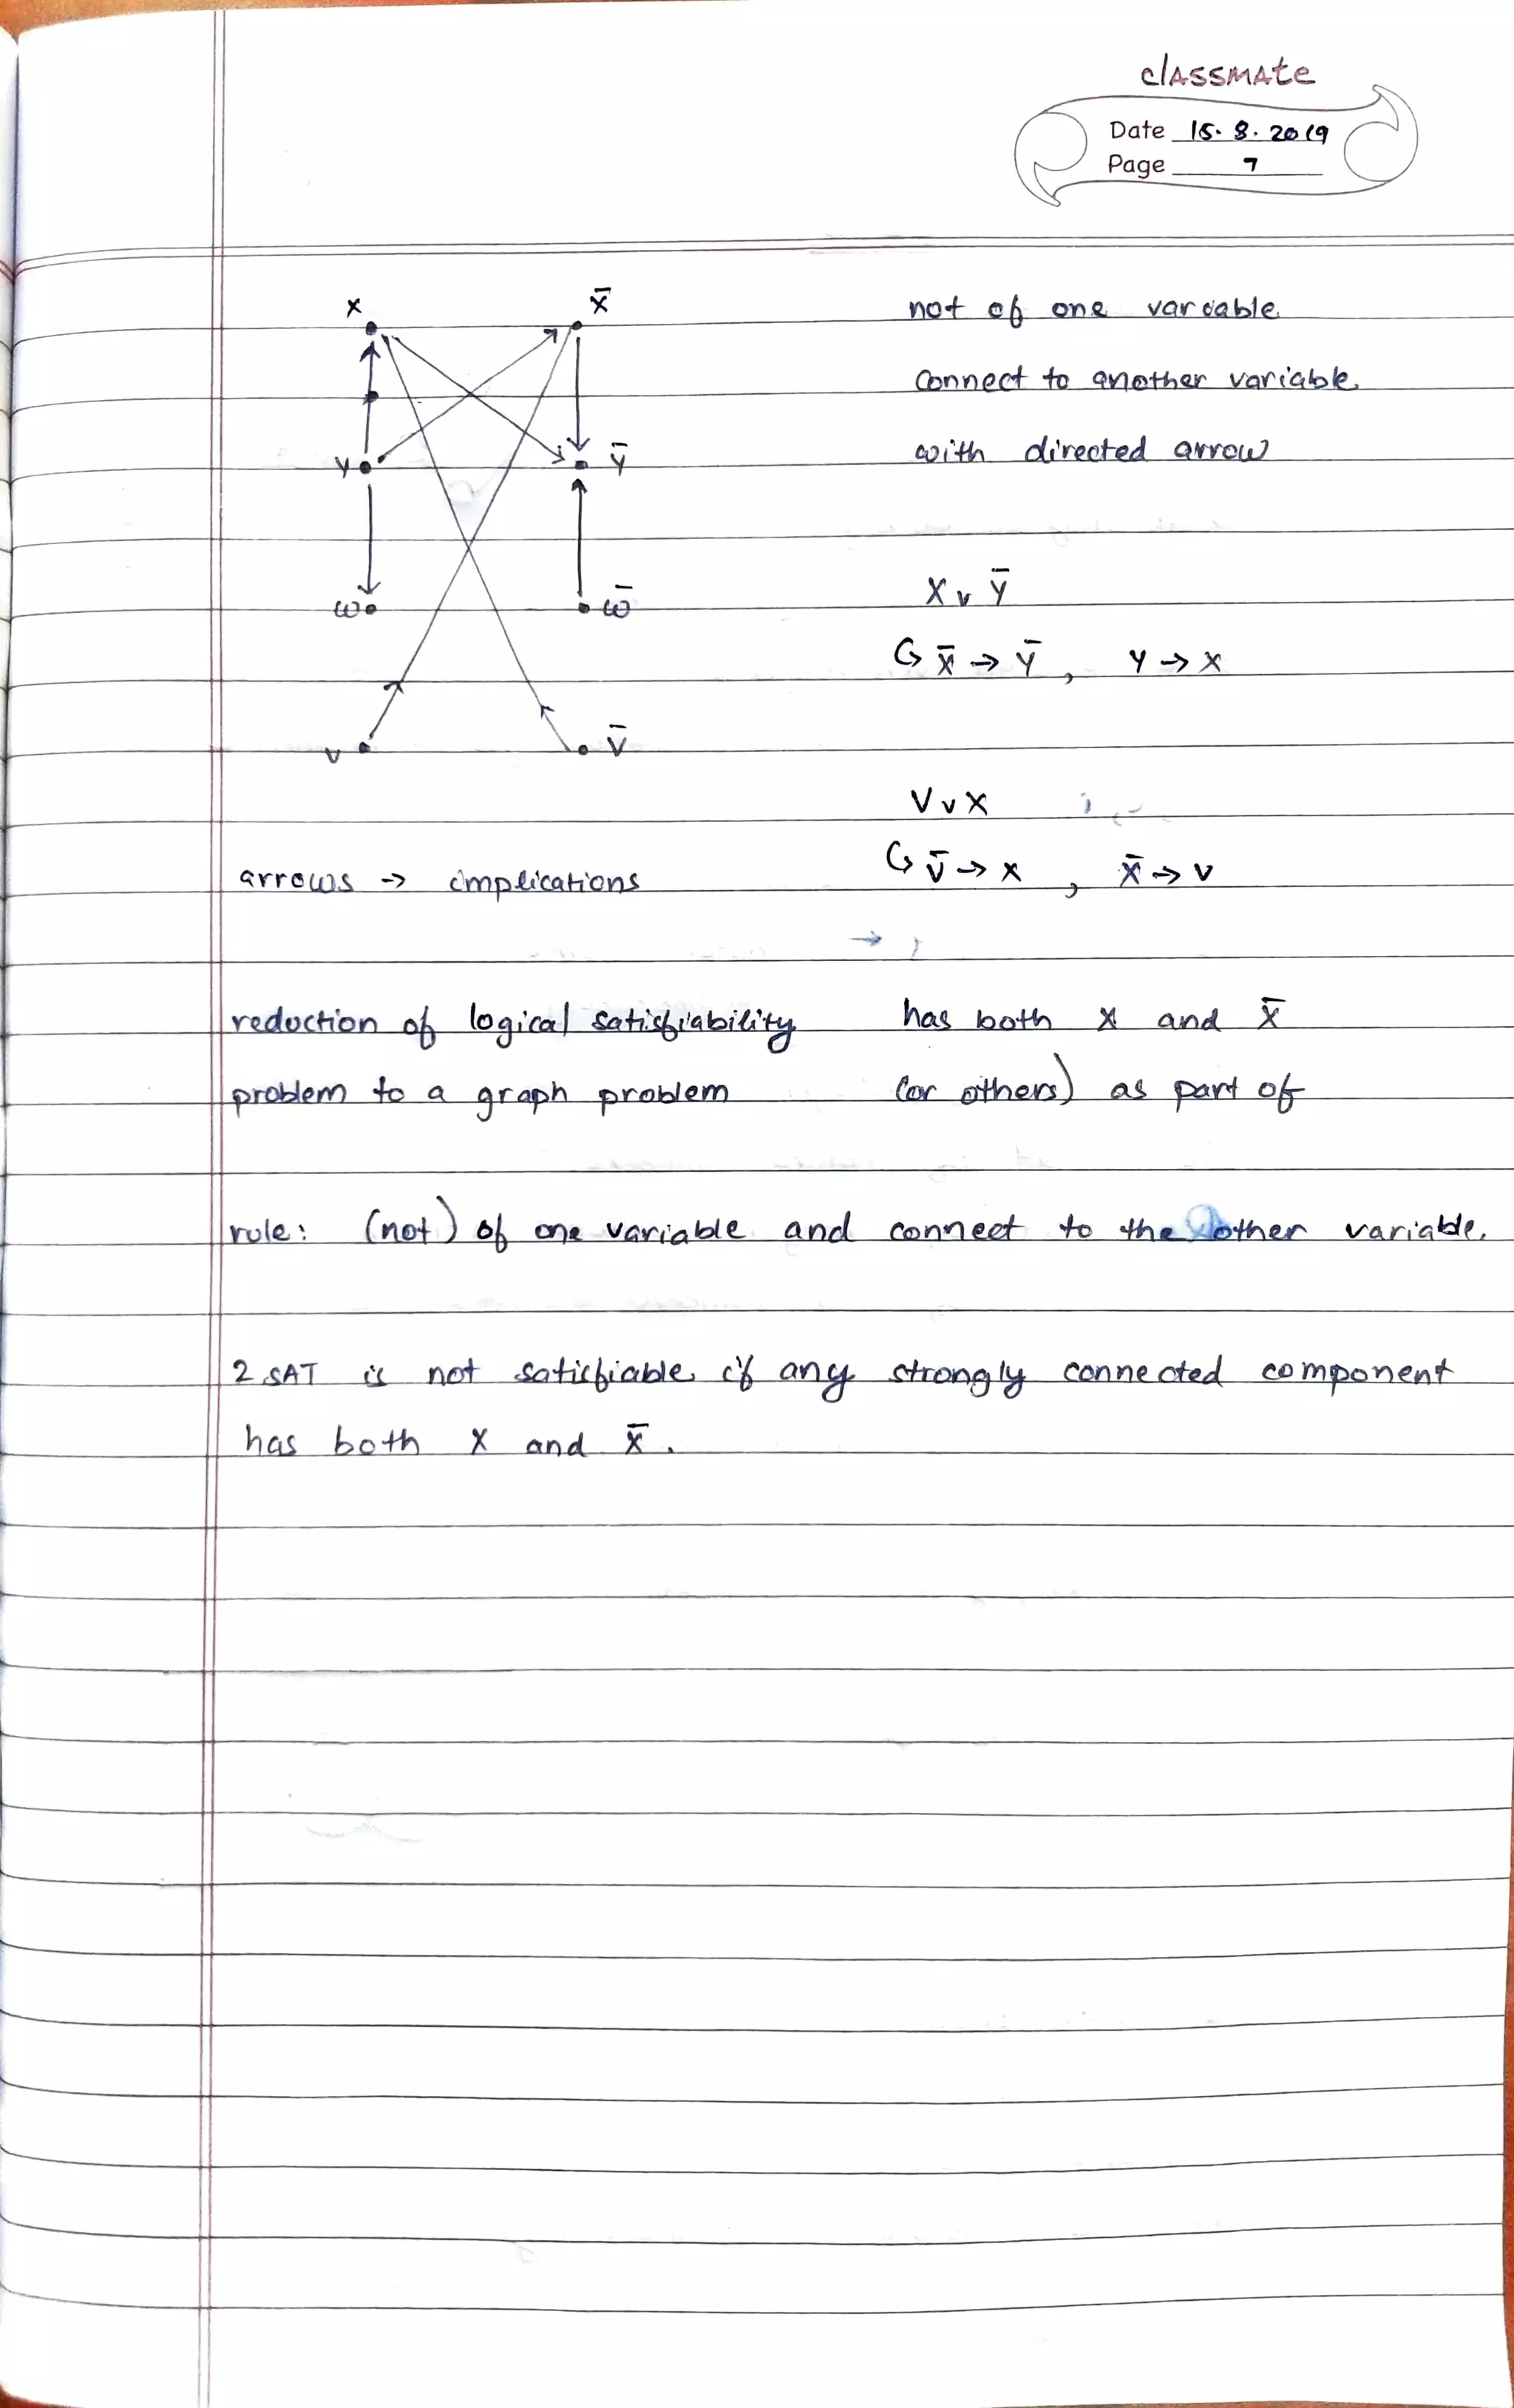 classmate
Date 15.8.2019
Page 7
x x̄
not of one variable
connect to another variable
y ȳ
with directed arrow
ω ω̄
x ∨ ȳ
↪ x̄ → ȳ , y → x
v v̄
v ∨ x
↪ v̄ → x , x̄ → v
arrows → implications
reduction of logical satisfiability
problem to a graph problem
has both x and x̄
(or others) as part of
rule: (not) of one variable and connect to the other variable.
2 SAT is not satisfiable if any strongly connected component
has both x and x̄ .